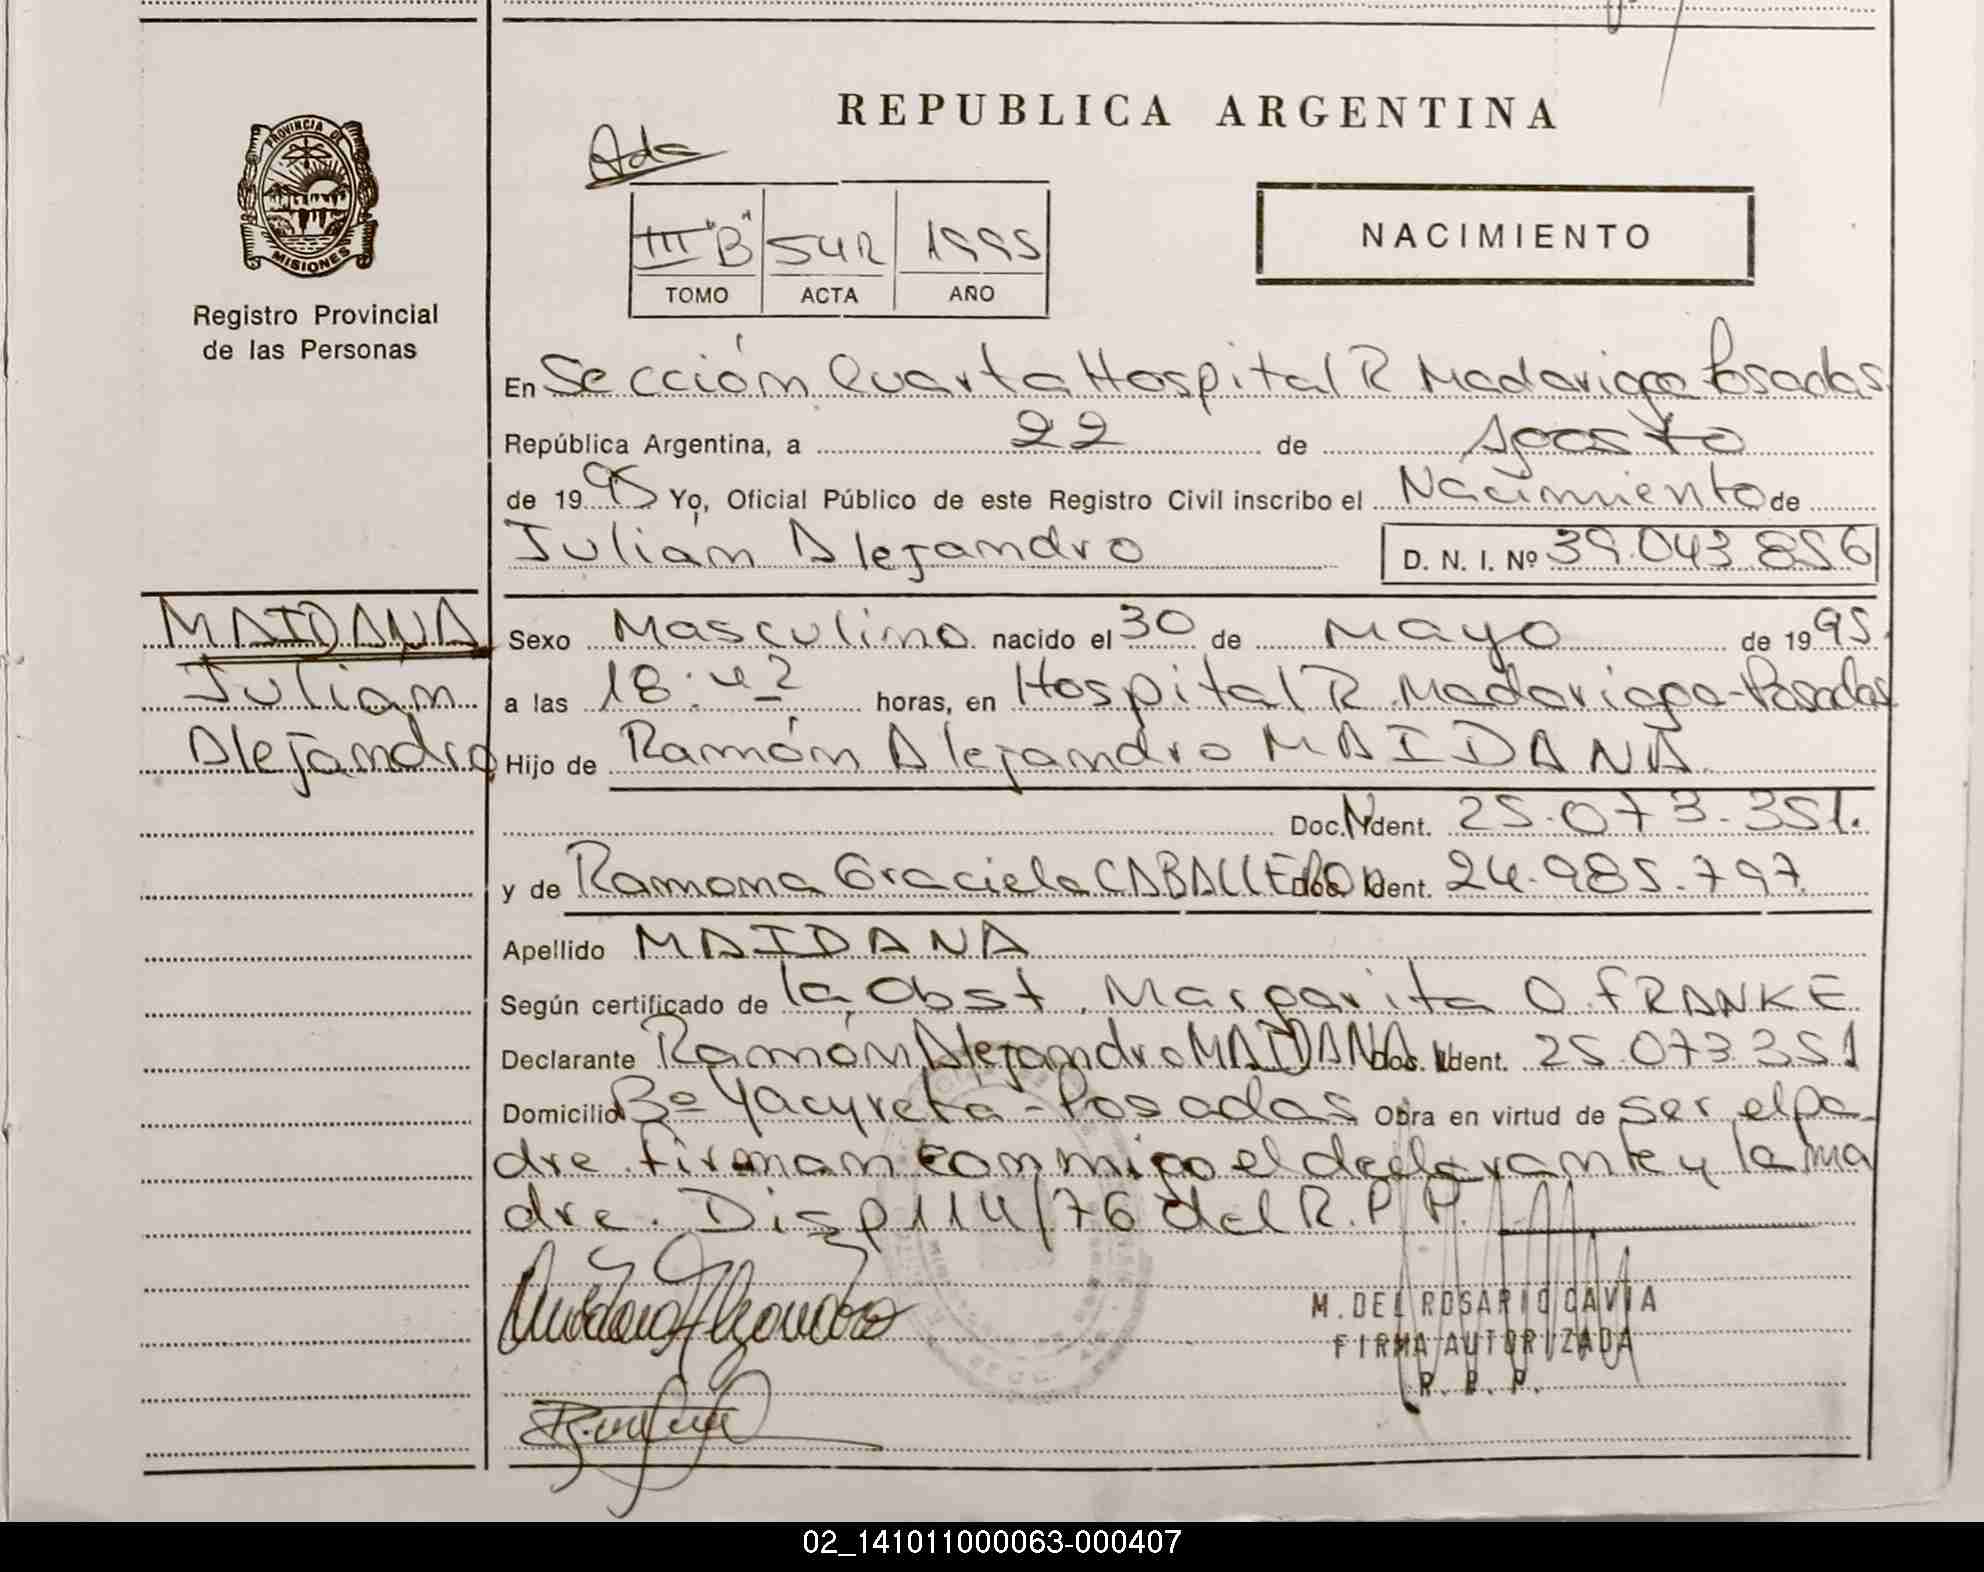 REPUBLICA ARGENTINA
PROVINCIA DE
MISIONES
Registro Provincial
de las Personas
Ada
III "B" 542 1995
TOMO ACTA AÑO
NACIMIENTO
En Sección Cuarta Hospital R Madariaga Posadas
República Argentina, a 22 de Agosto
de 1995 Yo, Oficial Público de este Registro Civil inscribo el Nacimiento de
Julián Alejandro D. N. I. Nº 39.043.856
MAIDANA
Julian
Alejandro
Sexo Masculino nacido el 30 de Mayo de 1995.
a las 18:42 horas, en Hospital R. Madariaga-Posadas
Hijo de Ramón Alejandro MAIDANA.
Doc. N Ident. 25.073.351.
y de Ramona Graciela CABALLERO Doc. Ident. 24.985.797.
Apellido MAIDANA
Según certificado de la Obst. Margarita O. FRANKE.
Declarante Ramón Alejandro MAIDANA Doc. Ident. 25.073.351
Domicilio Bº Yacyreta - Posadas Obra en virtud de ser el pa-
dre. Firman conmigo el declarante y la ma
dre. Disp 114/76 del R.P.P.
M. DEL ROSARIO CAVIA
FIRMA AUTORIZADA
R. P. P.
02_141011000063-000407